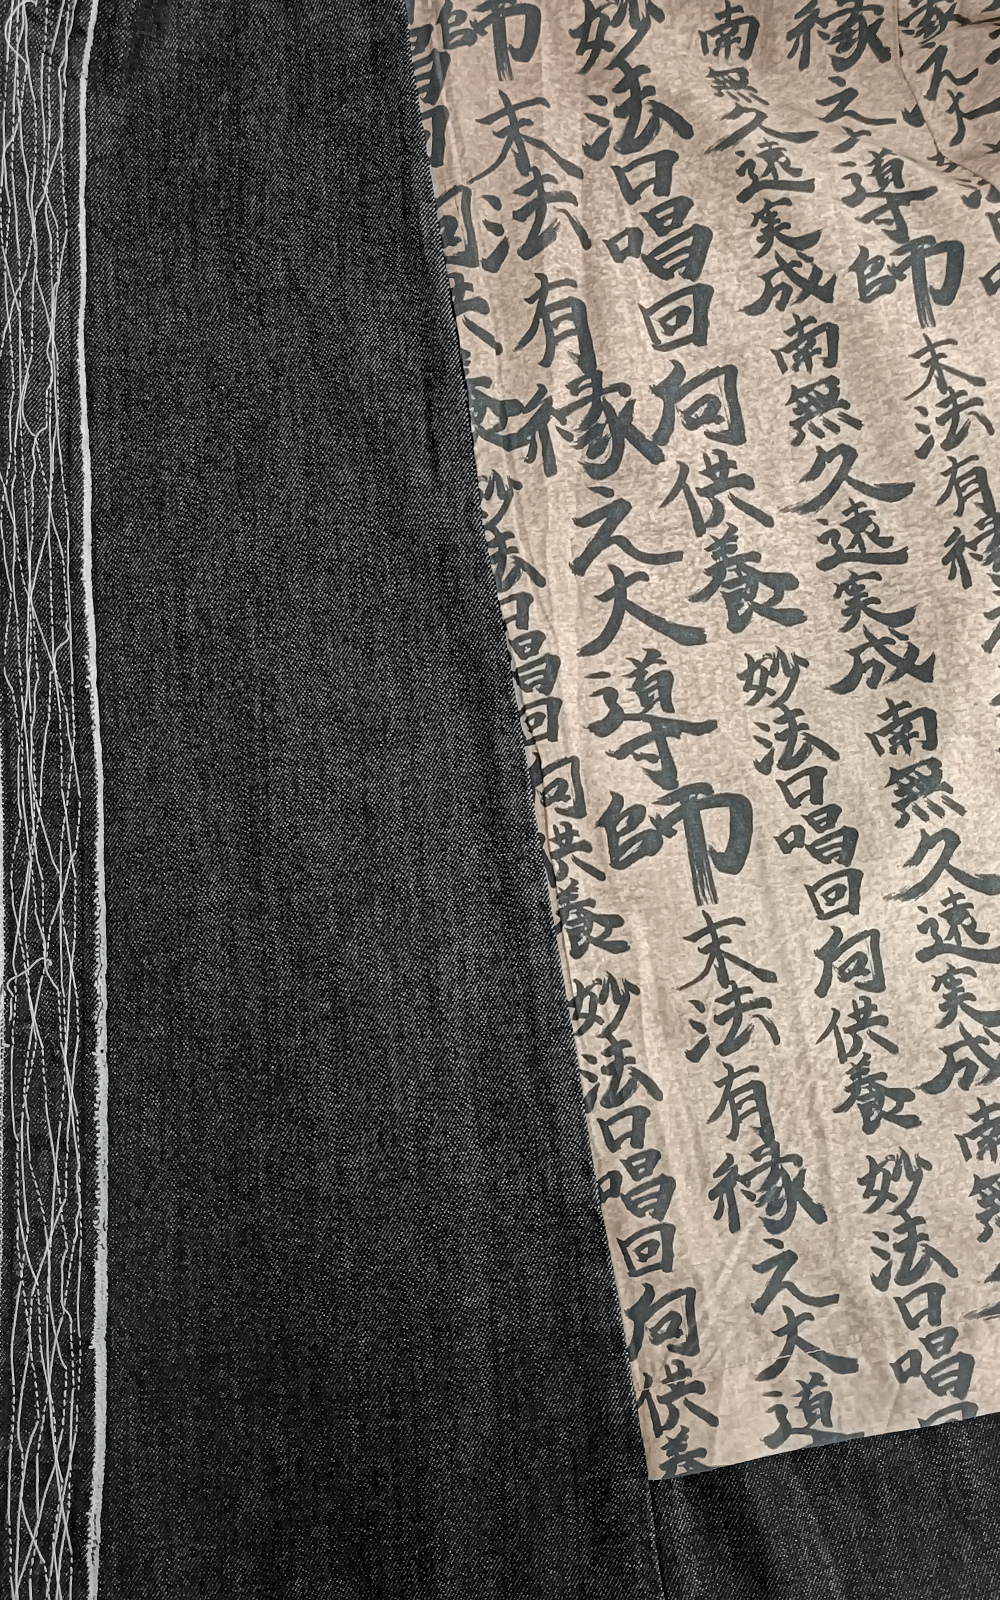 縁之大
縁之大導師末法有縁
南無久遠実成南無久遠実成南無久遠実成南無
妙法口唱回向供養妙法口唱回向供養妙法口唱
師末法有縁之大導師末法有縁之大導
唱回向供養妙法口唱回向供養妙法口唱回向供養